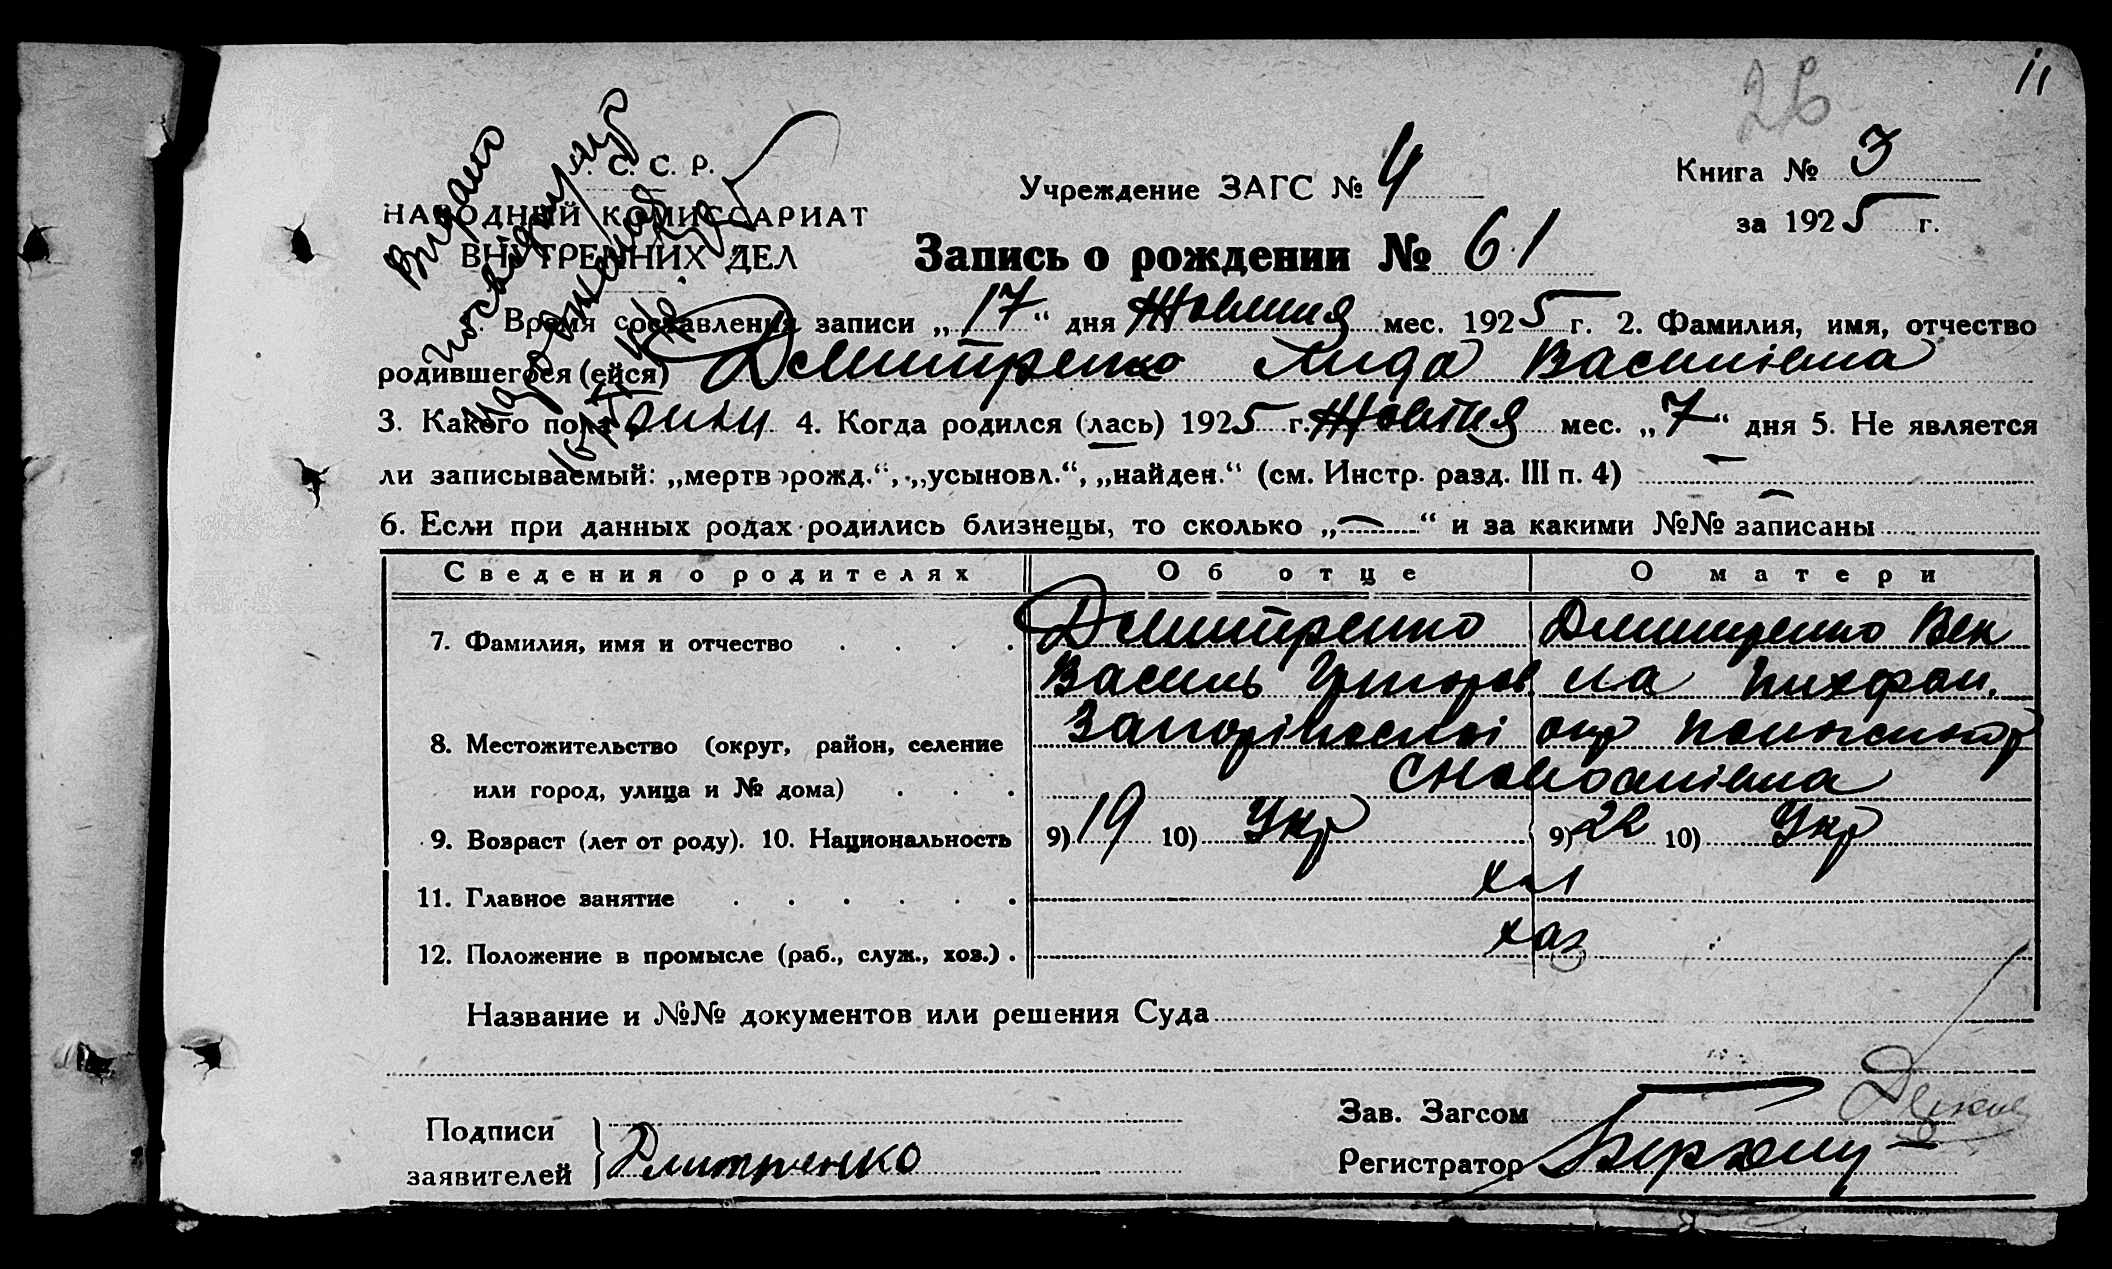 26
11
Видано
посвідку
С. С. Р.
НАРОДНЫЙ КОМИССАРИАТ
ВНУТРЕННИХ ДЕЛ
Учреждение ЗАГС № 4
Книга № 3
за 1925 г.
Запись о рождении № 61
1. Время составления записи „17“ дня Жовтня мес. 1925 г. 2. Фамилия, имя, отчество
родившегося (ейся) Дмитренко Лида Василівна
3. Какого пола 4. Когда родился (лась) 1925 г. Жовтня мес. „7“ дня 5. Не является
ли записываемый: „мертворожд.“, „усыновл.“, „найден.“ (см. Инстр. разд. III п. 4) —
6. Если при данных родах родились близнецы, то сколько „—“ и за какими №№ записаны —
Сведения о родителях Об отце О матери
7. Фамилия, имя и отчество . . . . Дмитренко Дмитренко
Василь Григоров.
8. Местожительство (округ, район, селение
или город, улица и № дома) . . .
9. Возраст (лет от роду). 10. Национальность 9) 19 10) Укр 9) 22 10) Укр
11. Главное занятие . . . . . .
12. Положение в промысле (раб., служ., хоз.) . хаз
Название и №№ документов или решения Суда
Подписи
заявителей Дмитренко
Зав. Загсом
Регистратор